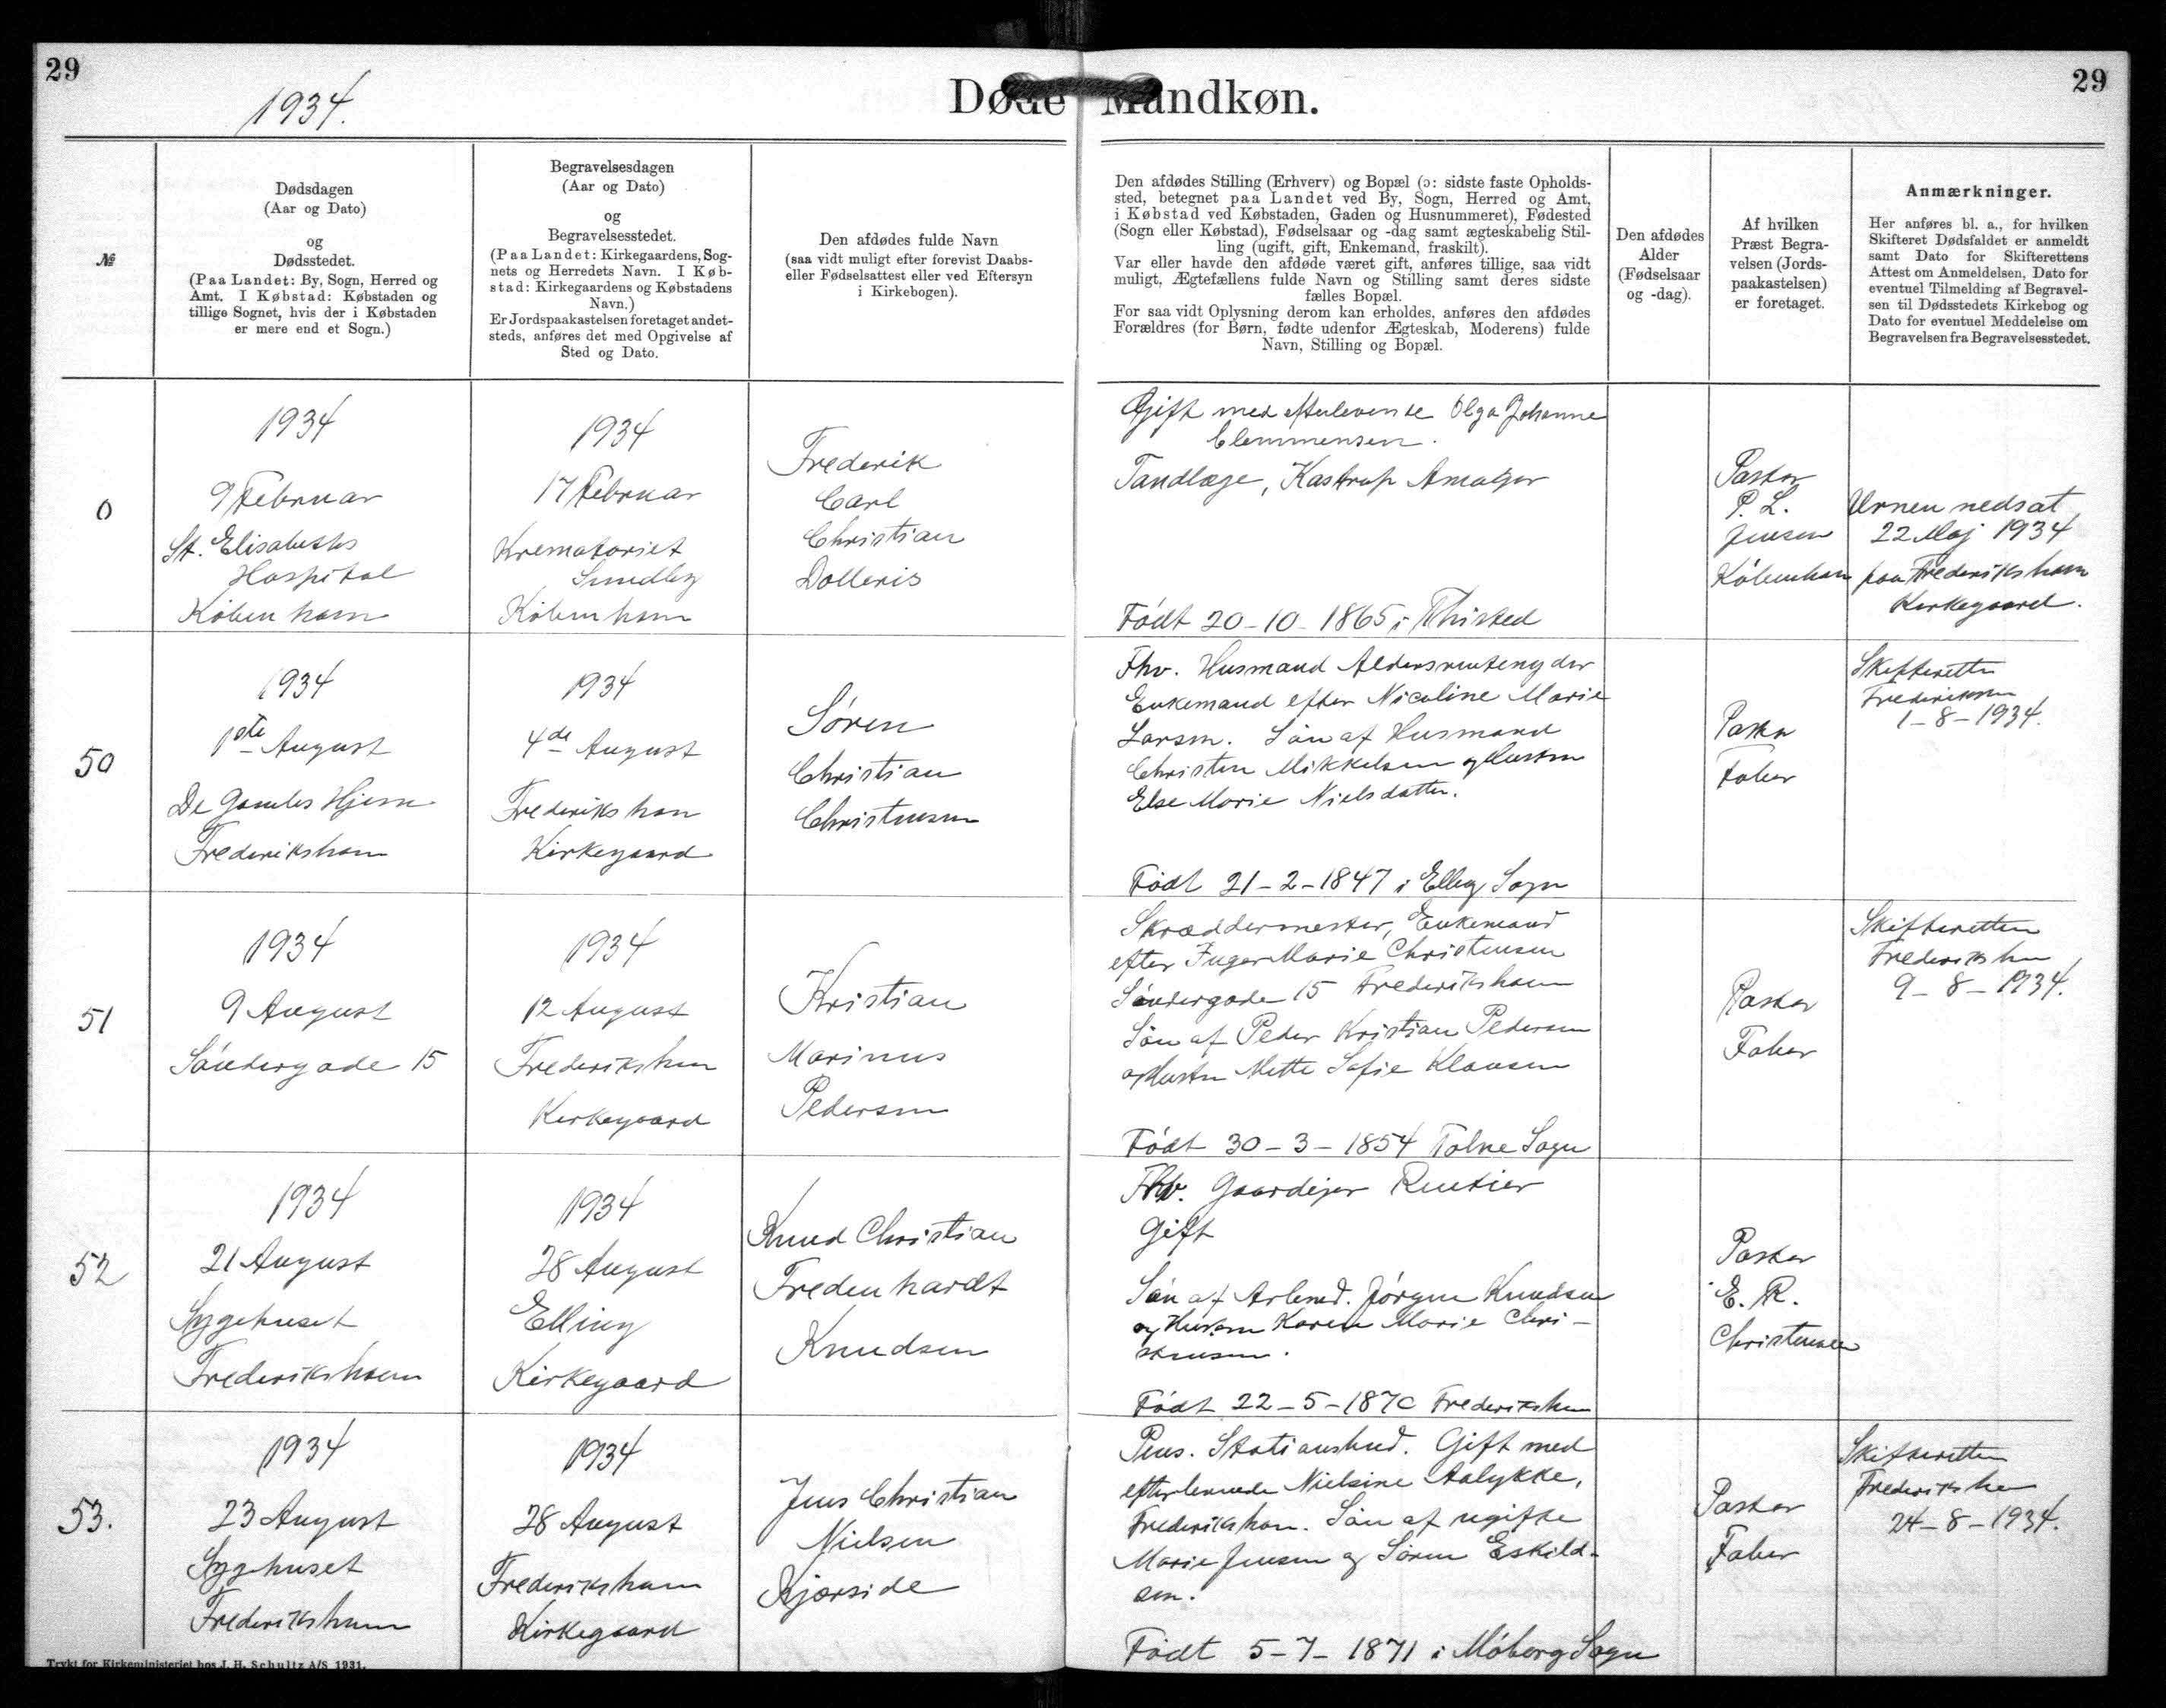 29
1934.
Døde Mandkøn.
29
№
Dødsdagen
(Aar og Dato)
og
Dødsstedet.
(Paa Landet: By, Sogn, Herred og
Amt. I Købstad: Købstaden og
tillige Sognet, hvis der i Købstaden
er mere end et Sogn.)
Begravelsesdagen
(Aar og Dato)
og
Begravelsesstedet.
(Paa Landet: Kirkegaardens, Sog-
nets og Herredets Navn. I Køb-
stad: Kirkegaardens og Købstadens
Navn.)
Er Jordspaakastelsen foretaget andet-
steds, anføres det med Opgivelse af
Sted og Dato.
Den afdødes fulde Navn
(saa vidt muligt efter forevist Daabs-
eller Fødselsattest eller ved Eftersyn
i Kirkebogen).
Den afdødes Stilling (Erhverv) og Bopæl (ɔ: sidste faste Opholds-
sted, betegnet paa Landet ved By, Sogn, Herred og Amt,
i Købstad ved Købstaden, Gaden og Husnummeret), Fødested
(Sogn eller Købstad), Fødselsaar og -dag samt ægteskabelig Stil-
ling (ugift, gift, Enkemand, fraskilt).
Var eller havde den afdøde været gift, anføres tillige, saa vidt
muligt, Ægtefællens fulde Navn og Stilling samt deres sidste
fælles Bopæl.
For saa vidt Oplysning derom kan erholdes, anføres den afdødes
Forældres (for Børn, fødte udenfor Ægteskab, Moderens) fulde
Navn, Stilling og Bopæl.
Den afdødes
Alder
(Fødselsaar
og -dag).
Af hvilken
Præst Begra-
velsen (Jords-
paakastelsen)
er foretaget.
Anmærkninger.
Her anføres bl. a., for hvilken
Skifteret Dødsfaldet er anmeldt
samt Dato for Skifterettens
Attest om Anmeldelsen, Dato for
eventuel Tilmelding af Begravel-
sen til Dødsstedets Kirkebog og
Dato for eventuel Meddelelse om
Begravelsen fra Begravelsesstedet.
0
1934
9 Februar
St. Elisabeths
Hospital
København
1934
17 Februar
Krematoriet
Sundby
København
Frederik
Carl
Christian
Dolleris
Gift med efterlevende Olga Johanne
Clemmensen.
Tandlæge, Kastrup Amager
Født 20-10-1865 i Thisted
Pastor
P. L.
Jensen
København
Urnen nedsat
22 Maj 1934
paa Frederikshavn
Kirkegaard.
50
1934
1ste August
De Gamles Hjem
Frederikshavn
1934
4de August
Frederikshavn
Kirkegaard
Søren
Christian
Christensen
Fhv. Husmand Aldersrentenyder
Enkemand efter Nicoline Marie
Larsen. Søn af Husmand
Christen Mikkelsen og Hustru
Else Marie Nielsdatter.
Født 21-2-1847 i Elling Sogn
Pastor
Faber
Skifteretten
Frederikshavn
1-8-1934.
51
1934
9 August
Søndergade 15
1934
12 August
Frederikshavn
Kirkegaard
Kristian
Marinus
Pedersen
Skræddermester, Enkemand
efter Inger Marie Christensen
Søndergade 15 Frederikshavn
Søn af Peder Kristian Pedersen
og Hustru Mette Sofie Klausen
Født 30-3-1854 Tolne Sogn
Pastor
Faber
Skifteretten
Frederikshavn
9-8-1934.
52
1934
21 August
Sygehuset
Frederikshavn
1934
28 August
Elling
Kirkegaard
Knud Christian
Fredenhardt
Knudsen
Fhv. Gaardejer Rentier
Gift
Søn af Arbmd. Jørgen Knudsen
og Hustru Karen Marie Chri-
stensen.
Født 22-5-1870 Frederikshavn
Pastor
E. R.
Christensen
53.
1934
23 August
Sygehuset
Frederikshavn
1934
28 August
Frederikshavn
Kirkegaard
Jens Christian
Nielsen
Kjærside
Pens. Stationsbud. Gift med
efterlevende Nielsine Aalykke,
Frederikshavn. Søn af ugifte
Marie Jensen og Søren Eskild-
sen.
Født 5-7-1871 i Møborg Sogn
Pastor
Faber
Skifteretten
Frederikshavn
24-8-1934.
Trykt for Kirkeministeriet hos J. H. Schultz A/S 1931.